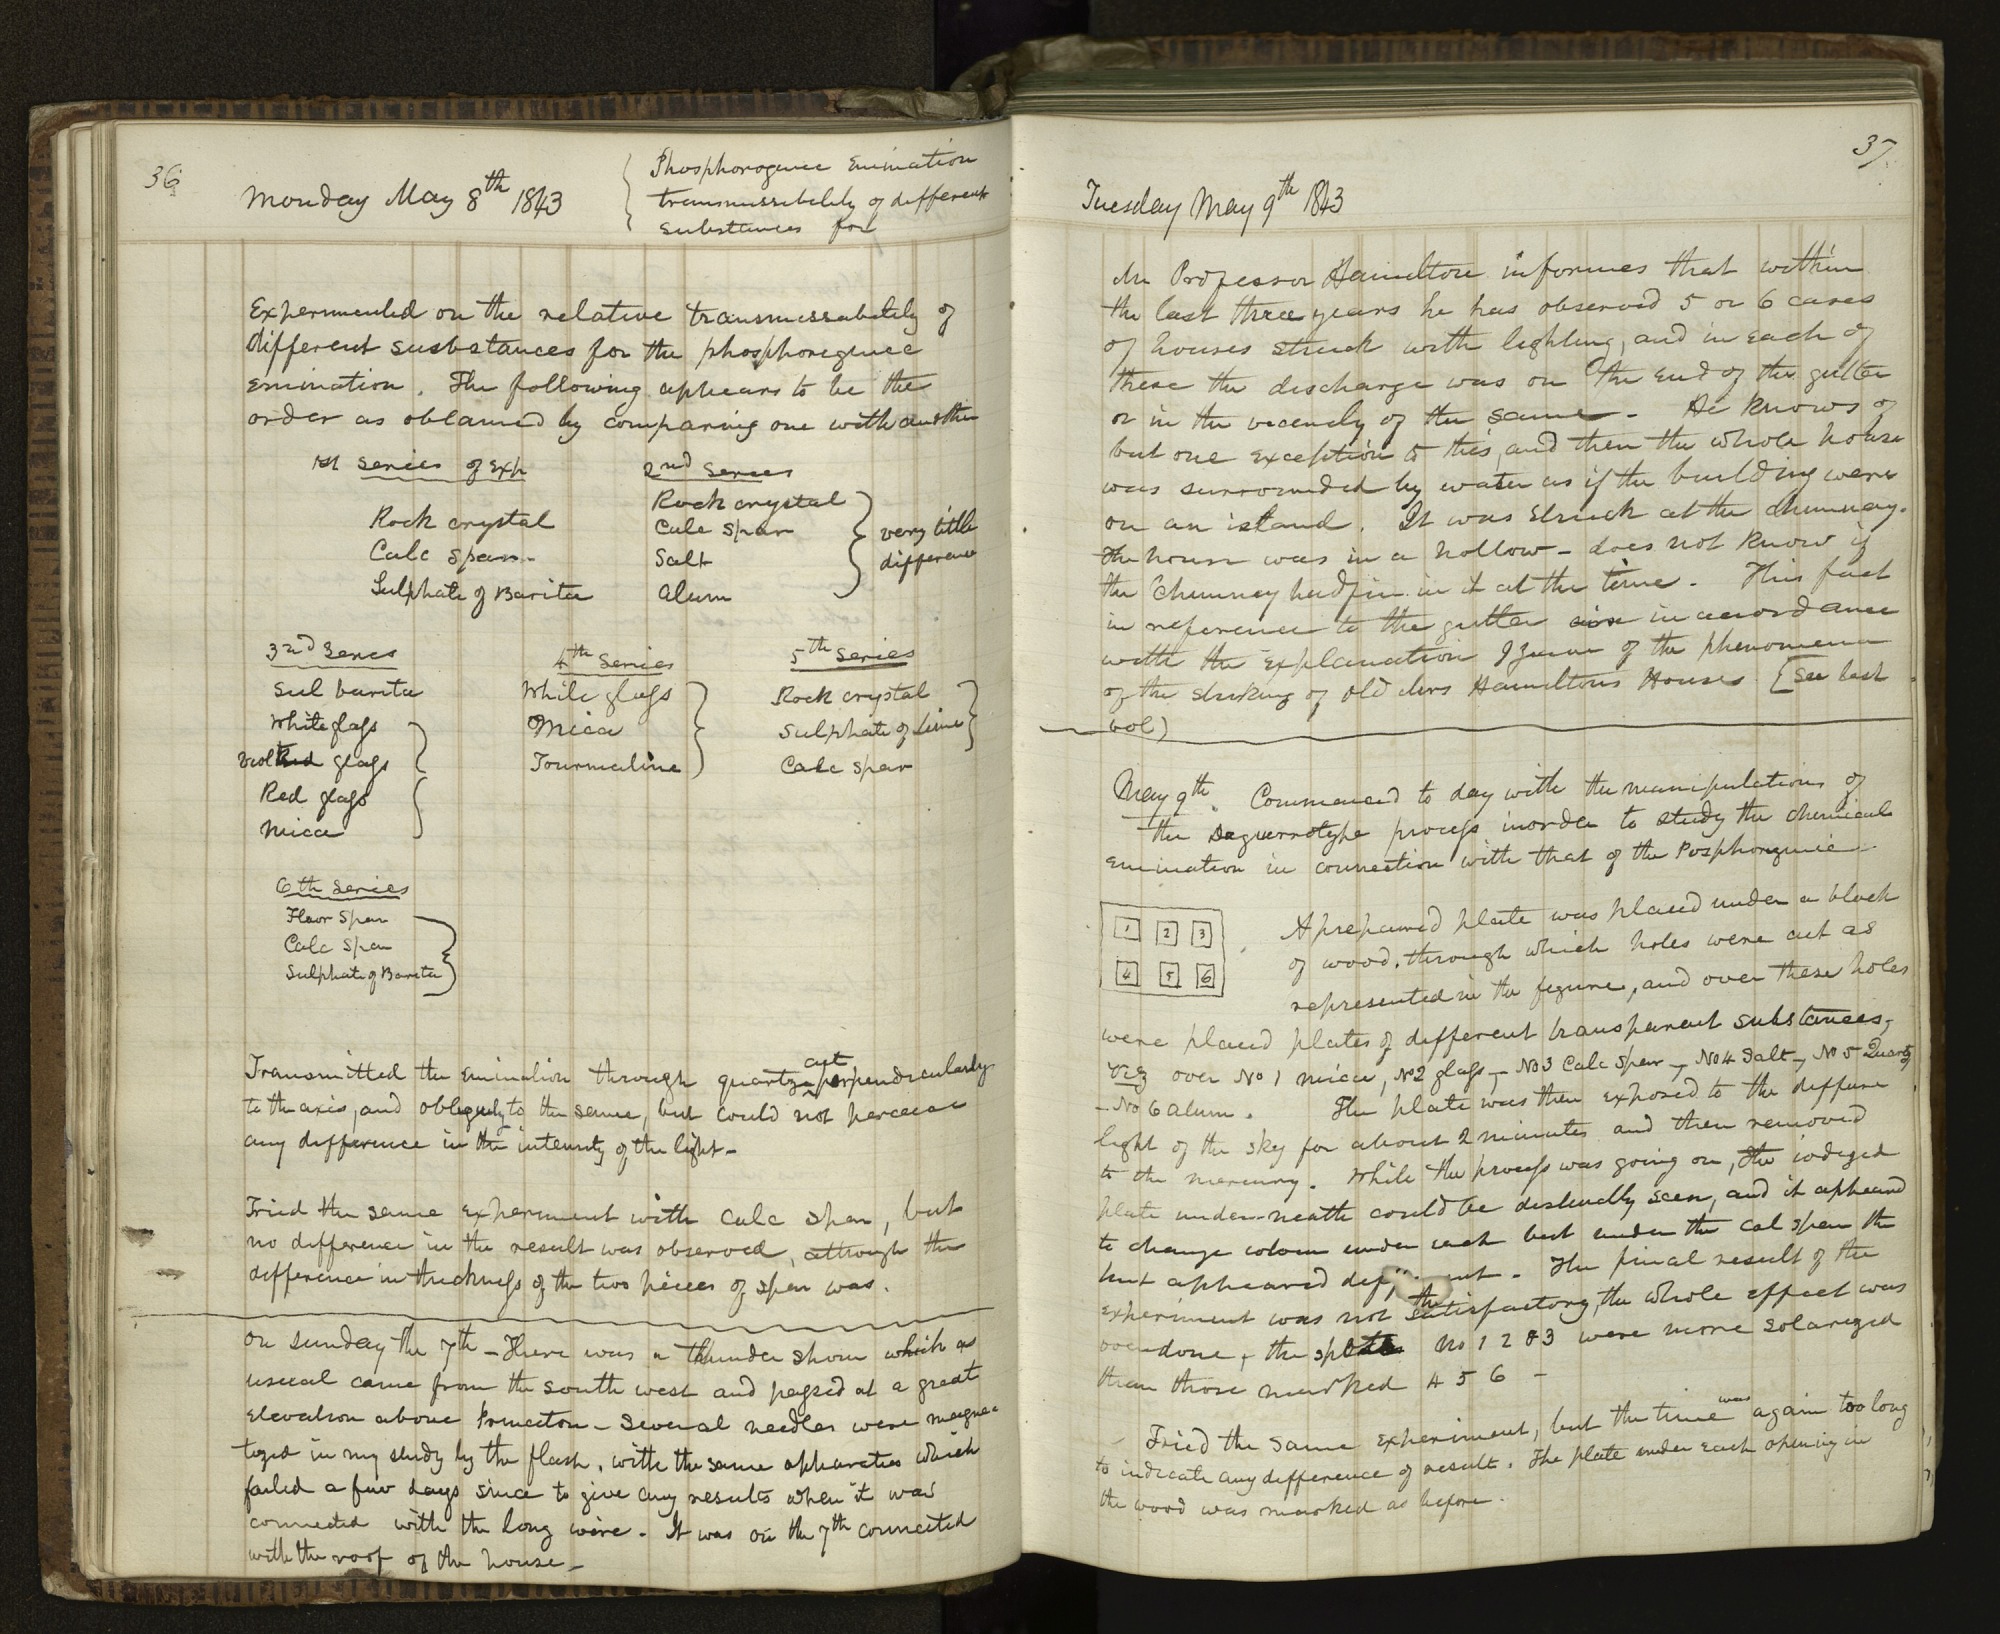 36
Monday May 8th 1843
Phosphorogenic Emination
transmissibility of different
substances for
Experimented on the relative transmissability of
different susbstances for the phosphoregenic
emination. The following appears to be the
order as obtained by comparing one with another
1st series of Exp
Rock crystal
Calc spar
Sulphate of Barita
2nd series
Rock crystal
Calc spar
Salt
Alum
very little
difference
3rd series
Sul barita
White glass
Violt Red glass
Red glass
Mica
4th series
White glass
Mica
Tourmaline
5th series
Rock crystal
Sulphate of lime
Calc spar
6th series
Floor spar
Calc spar
Sulphate of Barita
Transmitted the emination through quartz cut perpendicularly
to the axis, and obliquely to the same, but could not perceive
any difference in the intensity of the light –
Tried the same experiment with calc spar, but
no difference in the result was observed, although the
difference in thickness of the two pieces of spar was.
On sunday the 7th – There was a thunder shour which as
usual came from the south west and passed at a great
elevation above Princeton – Several needles were magne-
tized in my study by the flash, with the same apparatus which
failed a few days since to give any results when it was
connected with the long wire. It was on the 7th connected
with the roof of the house –
37
Tuesday May 9th 1843
Mr Professor Hamilton informes that within
the last three years he has observed 5 or 6 cases
of houses struck with lighting, and in each of
these the discharge was on the end of the gutter
or in the vecenity of the same – He knows of
but one exception to this, and then the whole house
was surrounded by water as if the building were
on an island. It was struck at the chimney.
The house was in a hollow – does not know if
the chimney had fire in it at the time – This fact
in reference to the gutter is in accordance
with the explanation I gave of the phenomena
of the striking of old Mrs Hamiltons House [See last
vol)
May 9th. Commenced to day with the manipulations of
the Daguerrotype process inorder to study the chemical
emination in connection with that of the Posphorgenic –
1 2 3
4 5 6
A prepaired plate was placed under a block
of wood, through which holes were cut as
represented in the figure, and over these holes
were placed plates of different transparent substances,
viz over No 1 mica, No 2 glass, – No 3 Calc spar –, No 4 Salt –, No 5 Quartz
– No 6 alum. The plate was then exposed to the diffuse
light of the sky for about 2 minutes and then removed
to the mercury. While the process was going on, the iodized
plate under-neath could be distinctly seen, and it appeared
to change colour under each but under the cal spar the
tint appeared different – The final result of the
experiment was not satisfactory, the whole effect was
overdone, the the spots No 1 2 & 3 were more solarized
than those marked 4 5 6 –
Tried the same experiment, but the time was again too long
to indicate any difference of result. The plate under each opening in
the wood was marked as before.